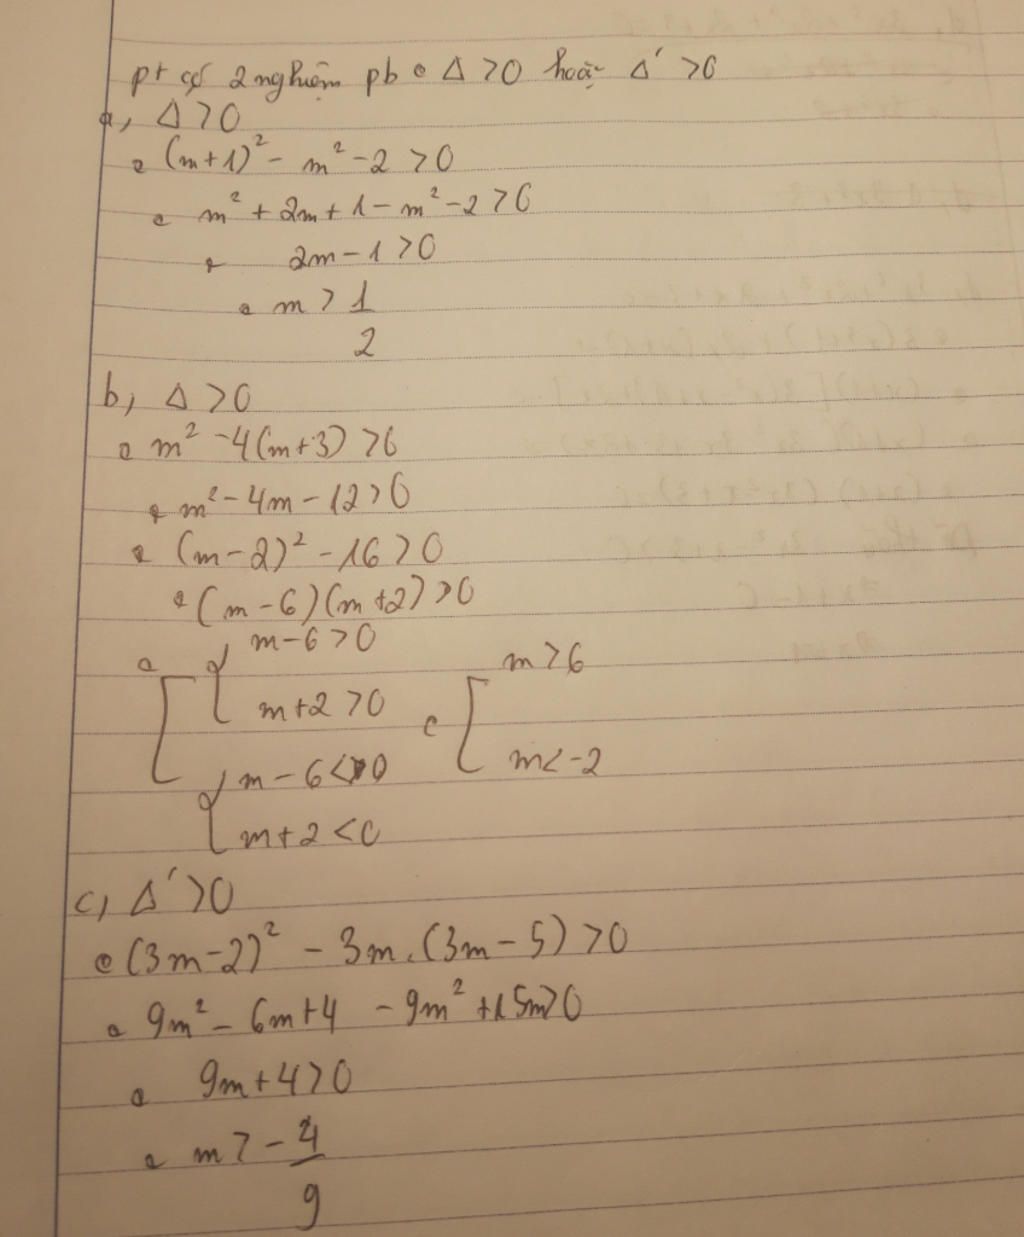 pt có 2 nghiệm pb ⇔ Δ > 0 hoặc Δ' > 0
a, Δ > 0
⇔ (m+1)² - m² - 2 > 0
⇔ m² + 2m + 1 - m² - 2 > 0
⇔ 2m - 1 > 0
⇔ m > 1/2
b, Δ > 0
⇔ m² - 4(m+3) > 0
⇔ m² - 4m - 12 > 0
⇔ (m-2)² - 16 > 0
⇔ (m-6)(m+2) > 0
⇔ [ { m-6 > 0
m+2 > 0
{ m-6 < 0
m+2 < 0
⇔ [ m > 6
m < -2
c, Δ' > 0
⇔ (3m-2)² - 3m.(3m-5) > 0
⇔ 9m² - 6m + 4 - 9m² + 15m > 0
⇔ 9m + 4 > 0
⇔ m > -4/9